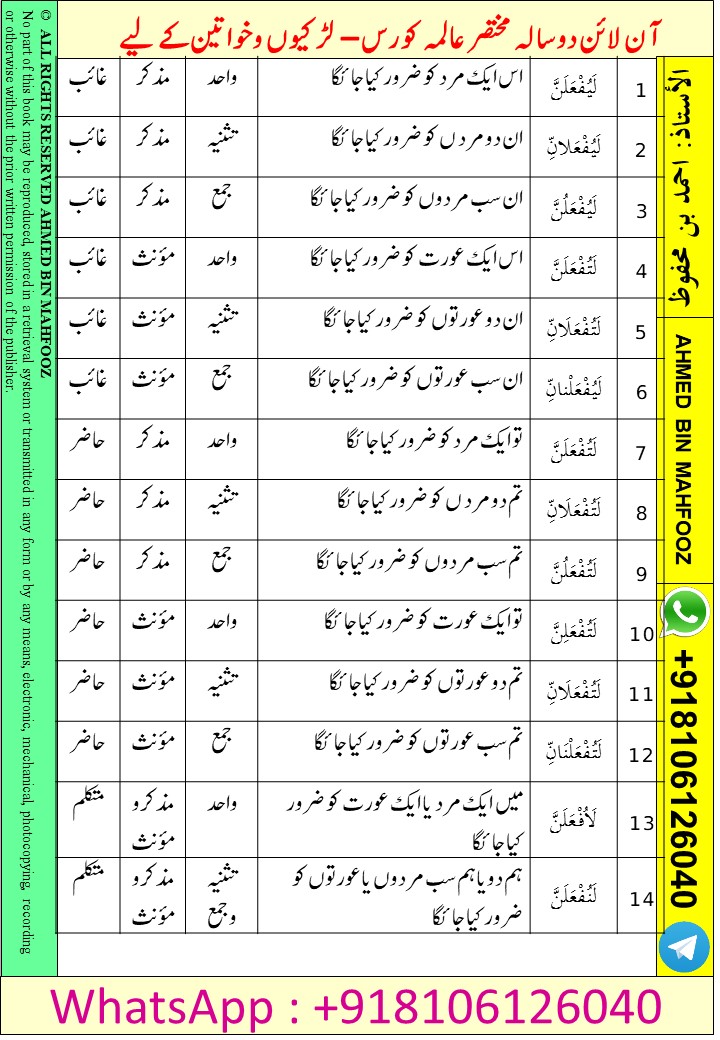 آن لائن دوسالہ مختصر عالمہ کورس– لڑکیوں وخواتین کے لیے
1 لَيُفْعَلَنَّ اس ایک مرد کو ضرور کیاجائگا واحد مذکر غائب
2 لَيُفْعَلانِّ ان دو مردں کو ضرور کیاجائگا تثنیہ مذکر غائب
3 لَيُفْعَلُنَّ ان سب مردوں کو ضرور کیاجائگا جمع مذکر غائب
4 لَتُفْعَلَنَّ اس ایک عورت کو ضرور کیاجائگا واحد مؤنث غائب
5 لَتُفْعَلَانِّ ان دو عورتوں کو ضرور کیاجائگا تثنیہ مؤنث غائب
6 لَيُفْعَلْنانِّ ان سب عورتوں کو ضرور کیاجائگا جمع مؤنث غائب
7 لَتُفْعَلَنَّ تو ایک مرد کو ضرور کیاجائگا واحد مذکر حاضر
8 لَتُفْعَلَانِّ تم دو مردں کو ضرور کیاجائگا تثنیہ مذکر حاضر
9 لَتُفْعَلُنَّ تم سب مردوں کو ضرور کیاجائگا جمع مذکر حاضر
10 لَتُفْعَلِنَّ تو ایک عورت کو ضرور کیاجائگا واحد مؤنث حاضر
11 لَتُفْعَلَانِّ تم دو عورتوں کو ضرور کیاجائگا تثنیہ مؤنث حاضر
12 لَتُفْعَلْنَانِّ تم سب عورتوں کو ضرور کیاجائگا جمع مؤنث حاضر
13 لَاُفْعَلَنَّ میں ایک مرد یا ایک عورت کو ضرور واحد مذکرو متکلم
کیاجائگا مؤنث
14 لَنُفْعَلَنَّ ہم دو یا ہم سب مردوں یا عورتوں کو تثنیہ مذکرو متکلم
ضرور کیاجائگا وجمع مؤنث
الأستاذ: احمد بن محفوظ
AHMED BIN MAHFOOZ
+918106126040
© ALL RIGHTS RESERVED AHMED BIN MAHFOOZ
No part of this book may be reproduced, stored in a retrieval system or transmitted in any form or by any means, electronic, mechanical, photocopying, recording
or otherwise without the prior written permission of the publisher.
WhatsApp : +918106126040